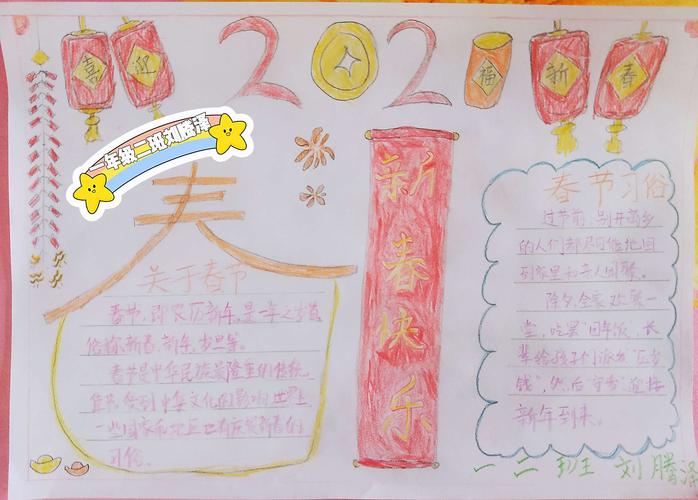 喜 迎 2 2 福 新 春
一年级二班刘腾泽
春
关于春节
春节,即农历新年,是一年之岁首,
俗称新春、新年、岁旦等。
春节是中华民族最隆重的传统
佳节,受到中华文化的影响,世界上
一些国家和地区也有庆贺新春的
习俗。
新春快乐
春节习俗
过节前,别井离乡
的人们都尽可能地回
到家里和亲人团聚。
除夕,全家欢聚一
堂,吃罢"团年饭",长
辈给孩子们派发"压岁
钱",然后"守岁"迎接
新年到来。
一 二 班 刘 腾 泽